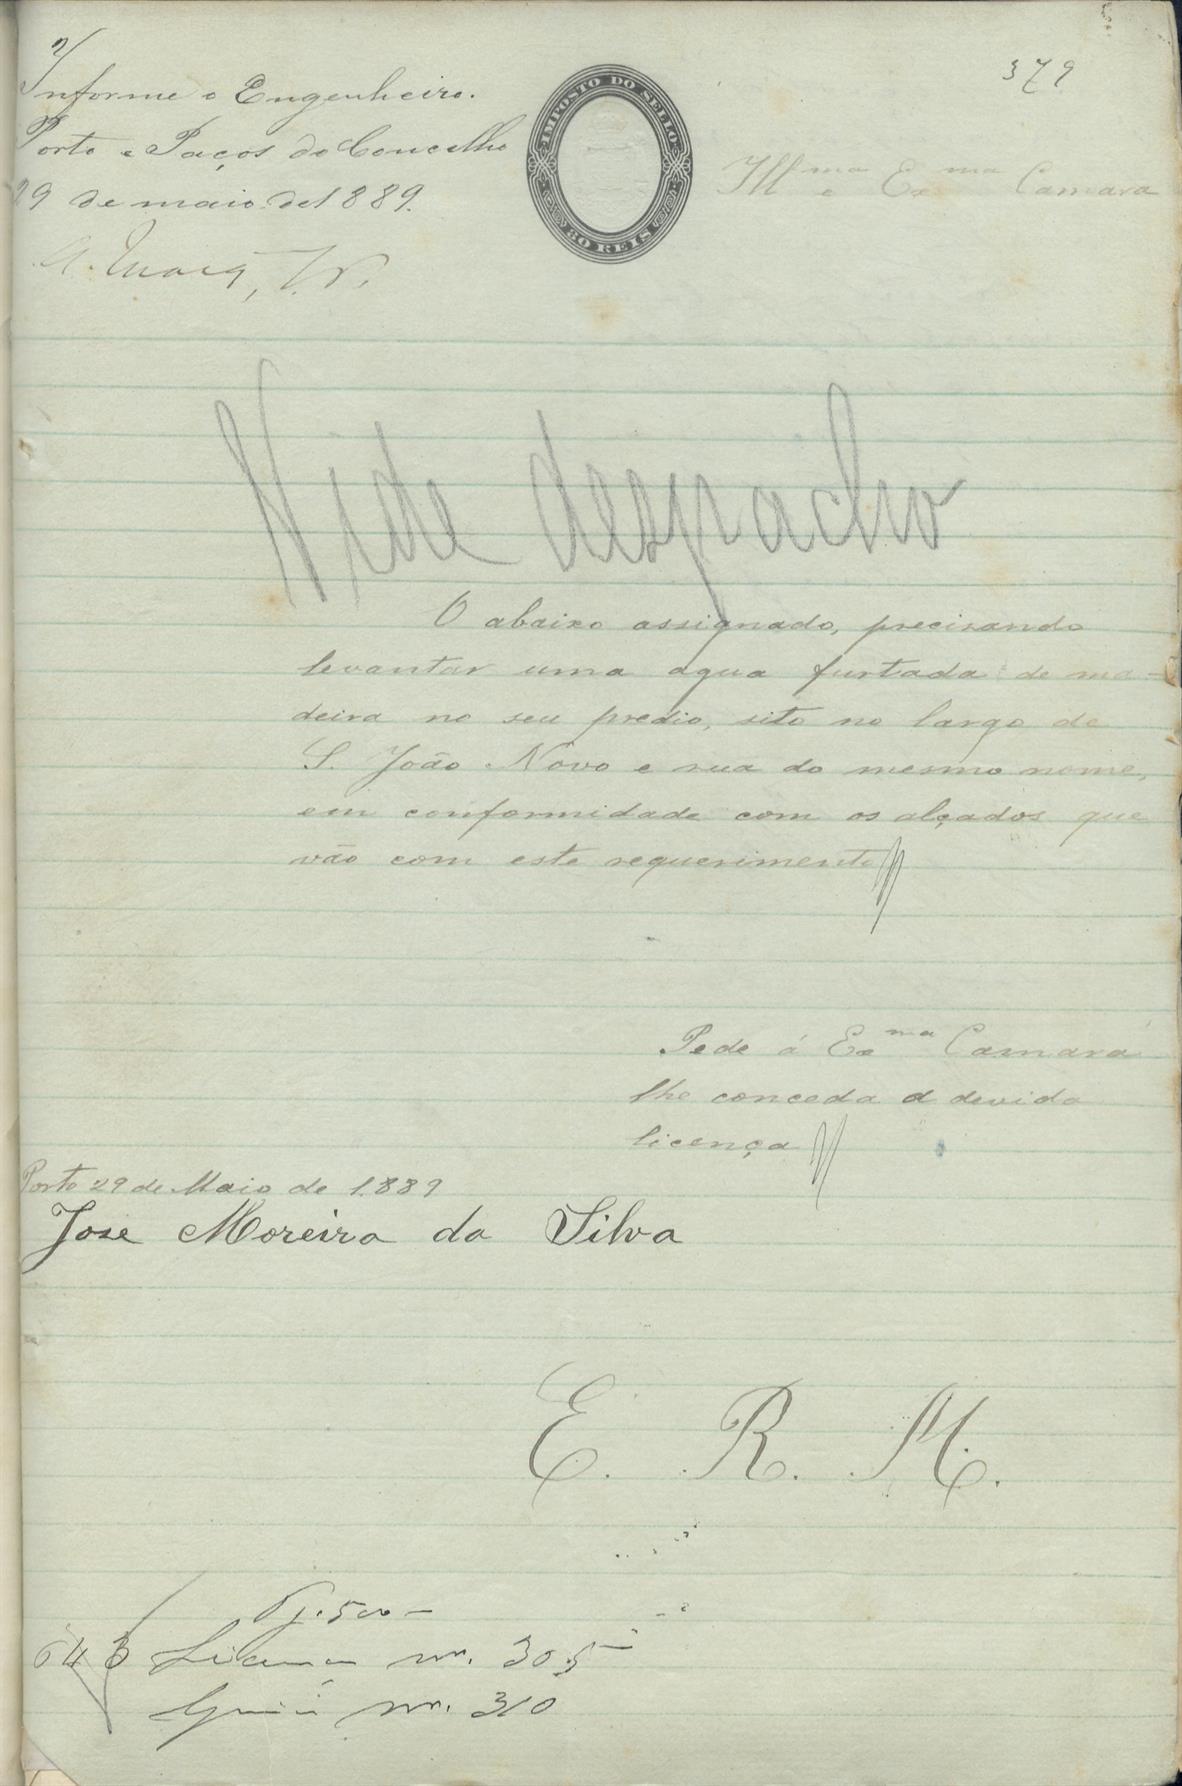 379
Informe o Engenheiro.
Porto e Paços do Concelho
29 de maio de 1889.
IMPOSTO DO SELLO
80 REIS
Illma e Exma Camara
Vide despacho
O abaixo assignado, precisando
levantar uma agua furtada de ma-
deira no seu predio, sito no largo de
S. João Novo e rua do mesmo nome,
em conformidade com os alçados que
vão com este requerimento
Pede á Exma Camara
lhe conceda a devida
licença
Porto 29 de Maio de 1889
Jose Moreira da Silva
E. R. M.
Pg. 500 -
643 Licença nº. 305
Guia nº. 310